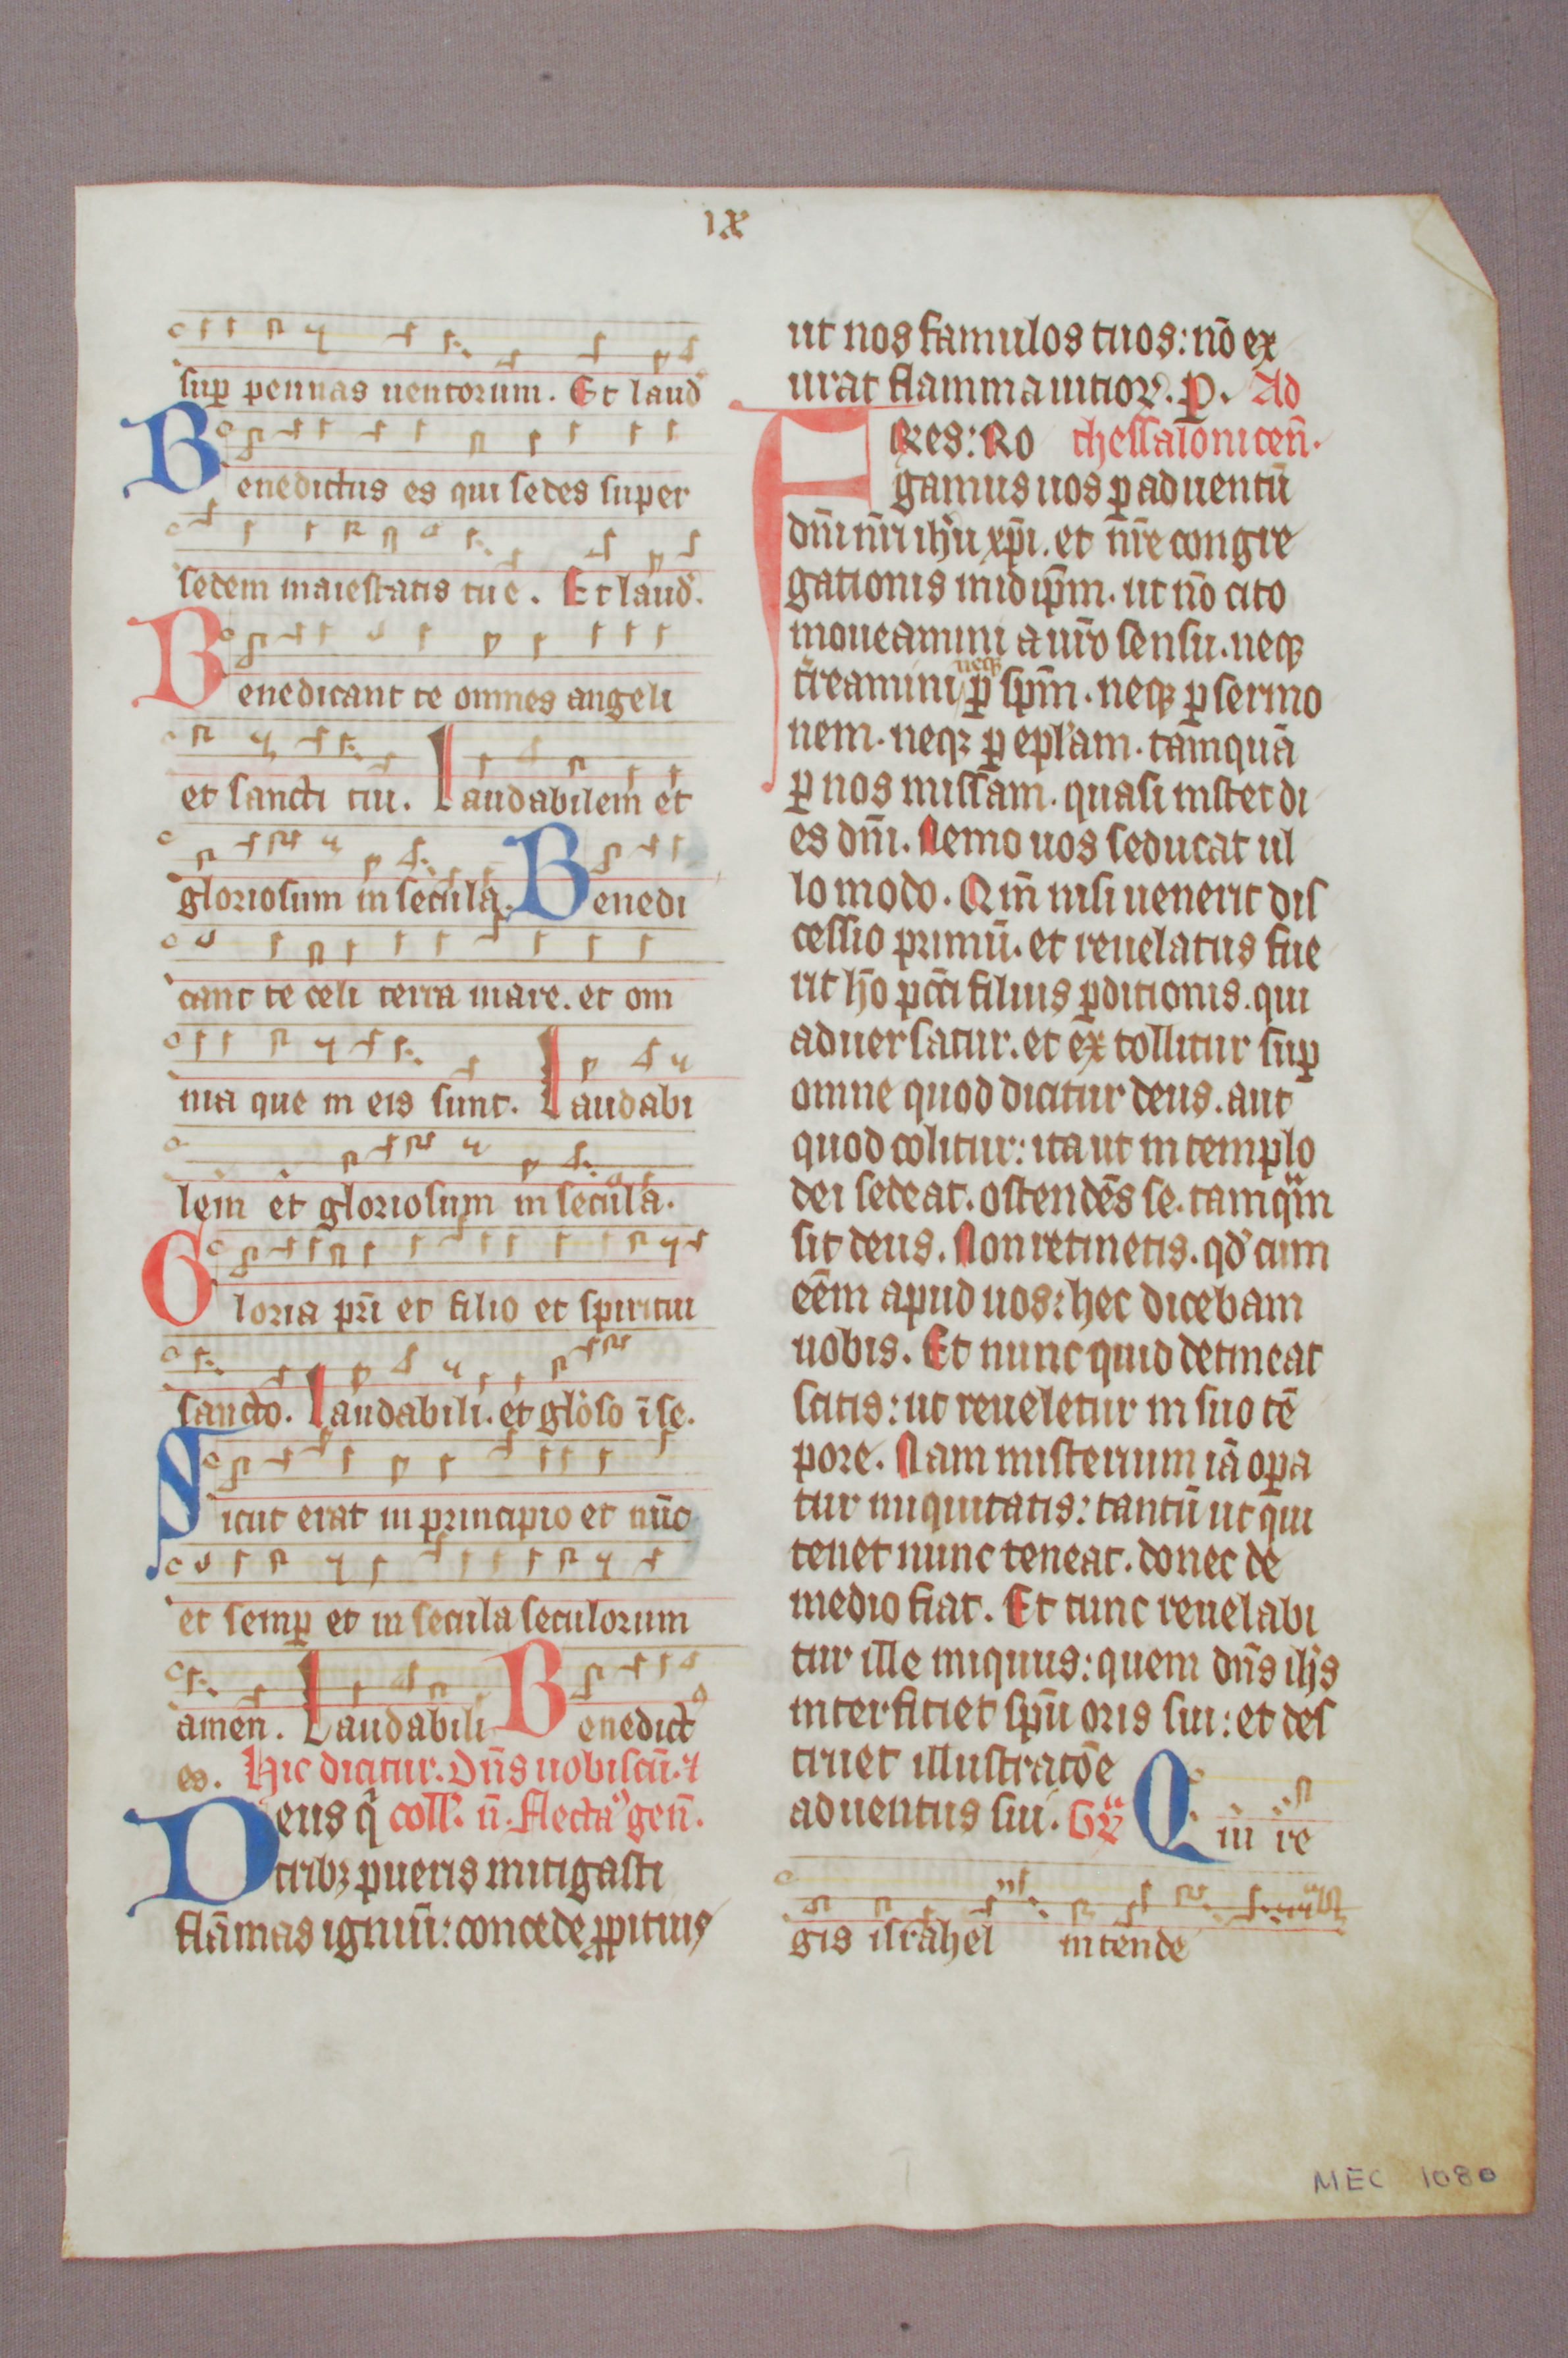 ıx
sup̲ pennas uentorum. Et laud̛
Benedictus es qui sedes super
sedem maiestatis tue. Et laud̛.
Benedicant te omnes angeli
et sancti tui. Laudabilem et
gloriosum in secula. Benedi
cant te celi terra mare. et om
nia que in eis sunt. Laudabi
lem et gloriosum in secula.
Gloria pr̄i et filio et spiritui
sancto. Laudabili. et glơso ī se.
Sicut erat in principio et nūc
et semp̲ et in secula seculorum
amen. Laudabili Benedict
es. Hic dicitur. Dn̄s uobiscū. ⁊
Deus q̄ coll̛. n̄. flectaꝰ gen̄.
tribꝫ pueris mitigasti
flāmas igniū: concede ꝓpitius
ut nos famulos tuos: nō ex
urat flamma uitioꝝ. P. Ad
FRes: Ro thessalonicen̄.
gamus uos ꝑ aduentū
dn̄i nr̄i ihū xp̄i. et nr̄e congre
gationis in id ip̄m. ut nō cito
moueamini a ur̄o sensu. neqꝫ
t̛reamini neqꝫ ꝑ sp̄m. neqꝫ ꝑ sermo
nem. neqꝫ ꝑ epl̛am. tamquā
ꝑ nos missam. quasi instet di
es dn̄i. Nemo uos seducat ul
lo modo. Qm̄ nisi uenerit dis
cessio primū. et reuelatus fue
rit hō pcc̄i filius ꝑditionis. qui
aduersatur. et extollitur sup̲
omne quod dicitur deus. aut
quod colitur: ita ut in templo
dei sedeat. ostendēs se. tamqͣm
sit deus. Non retinetis. qd̛ cum
eēm apud uos: hec dicebam
uobis. Et nunc quid detineat
scitis: ut reueletur in suo tē
pore. Nam misterium iā oꝑa
tur iniquitatis: tantū ut qui
tenet nunc teneat. donec de
medio fiat. Et tunc reuelabi
tur ille iniquus: quem dn̄s ihs̄
interficiet spū oris sui: et des
truet illustratōe
aduentus sui. Gͣꝟ Qui re
gis israhel intende
MEC 1080